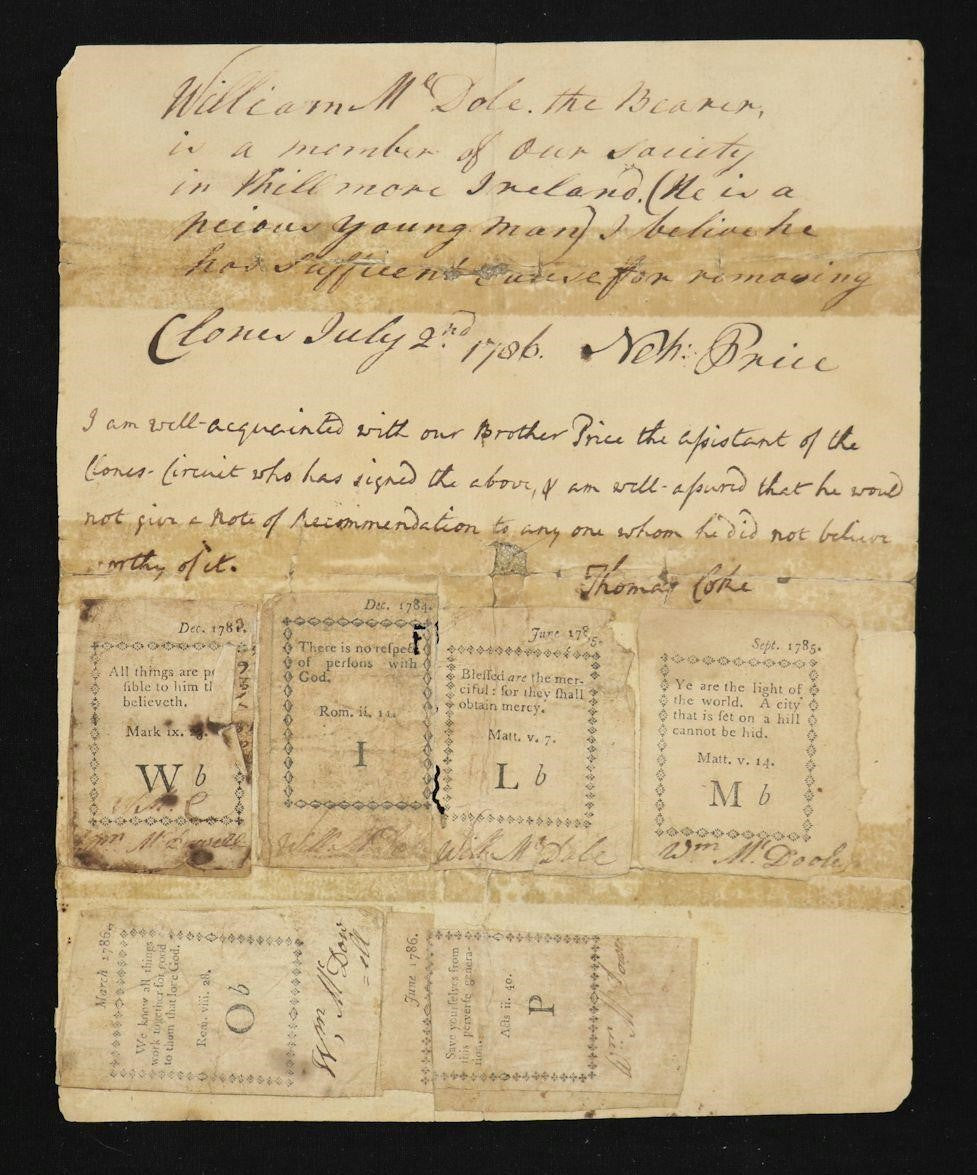 William Mc Dole. the Bearer,
is a member of Our Society
in Khillmore Ireland. (He is a
peious young man) I believe he
has Suffient Cause for removing
Clones July 2nd 1786. Neh: Price
I am well-acquainted with our Brother Price the aſsistant of the
Clones-Circuit who has signed the above, & am well-aſsured that he would
not give a Note of Recommendation to any one whom he did not believe
worthy of it.
Thomas Coke
Dec. 178
All things are po
ſible to him th
believeth.
Mark ix.
W b
Wm. McDowell
Dec. 1784.
There is no reſpect
of perſons with
God.
Rom. ii. 11.
I
Will
June 1785.
Bleſſed are the mer-
ciful: for they ſhall
obtain mercy.
Matt. v. 7.
L b
Will Mc Dole
Sept. 1785.
Ye are the light of
the world. A city
that is ſet on a hill
cannot be hid.
Matt. v. 14.
M b
Wm McDoole
March 1786.
We know all things
work together for good
to them that love God.
Rom. viii. 28.
O b
Wm, McDow
=ell
June 1786.
Save yourſelves from
this perverſe genera-
tion.
Acts ii. 40.
P
Wm